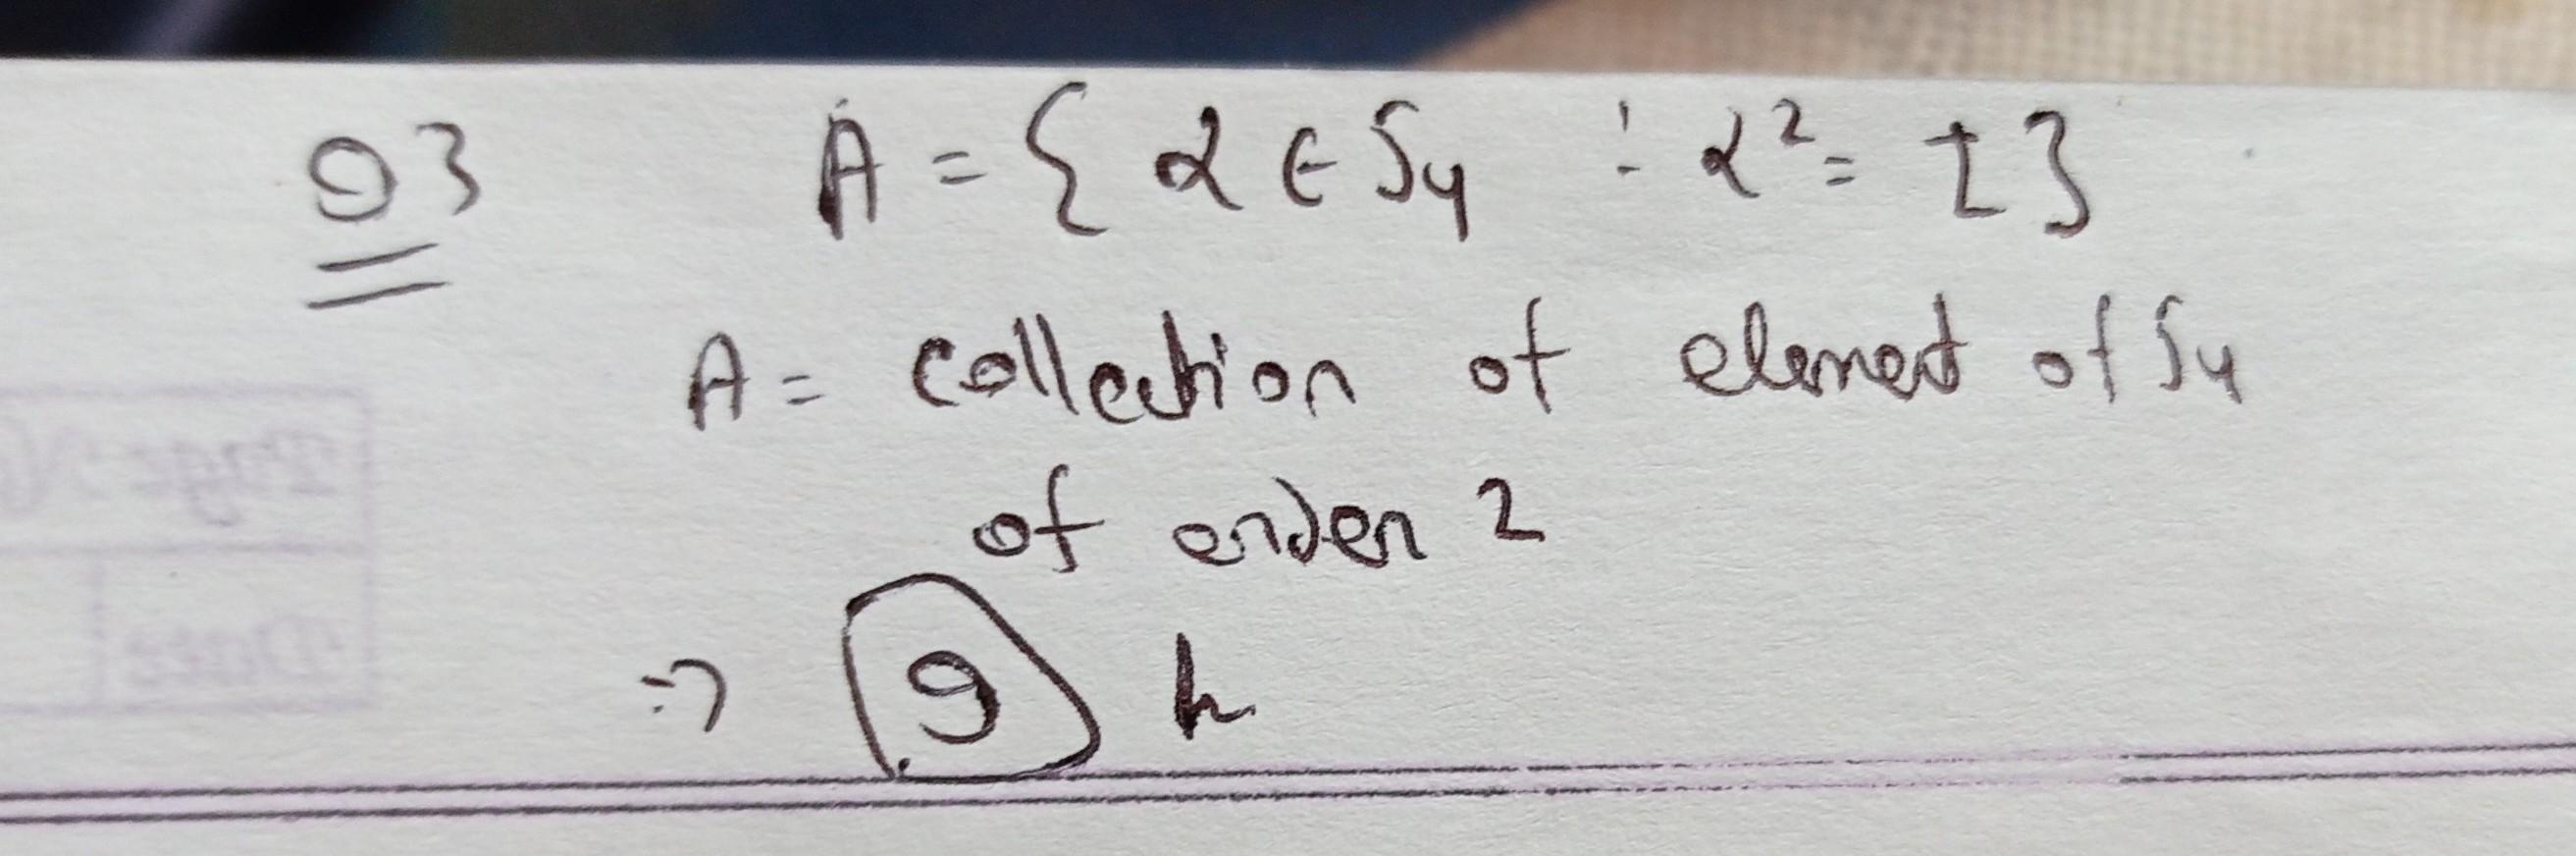 Q3 A = { α ∈ S4 : α² = I }
A = collection of element of S4
of order 2
⇒ 9